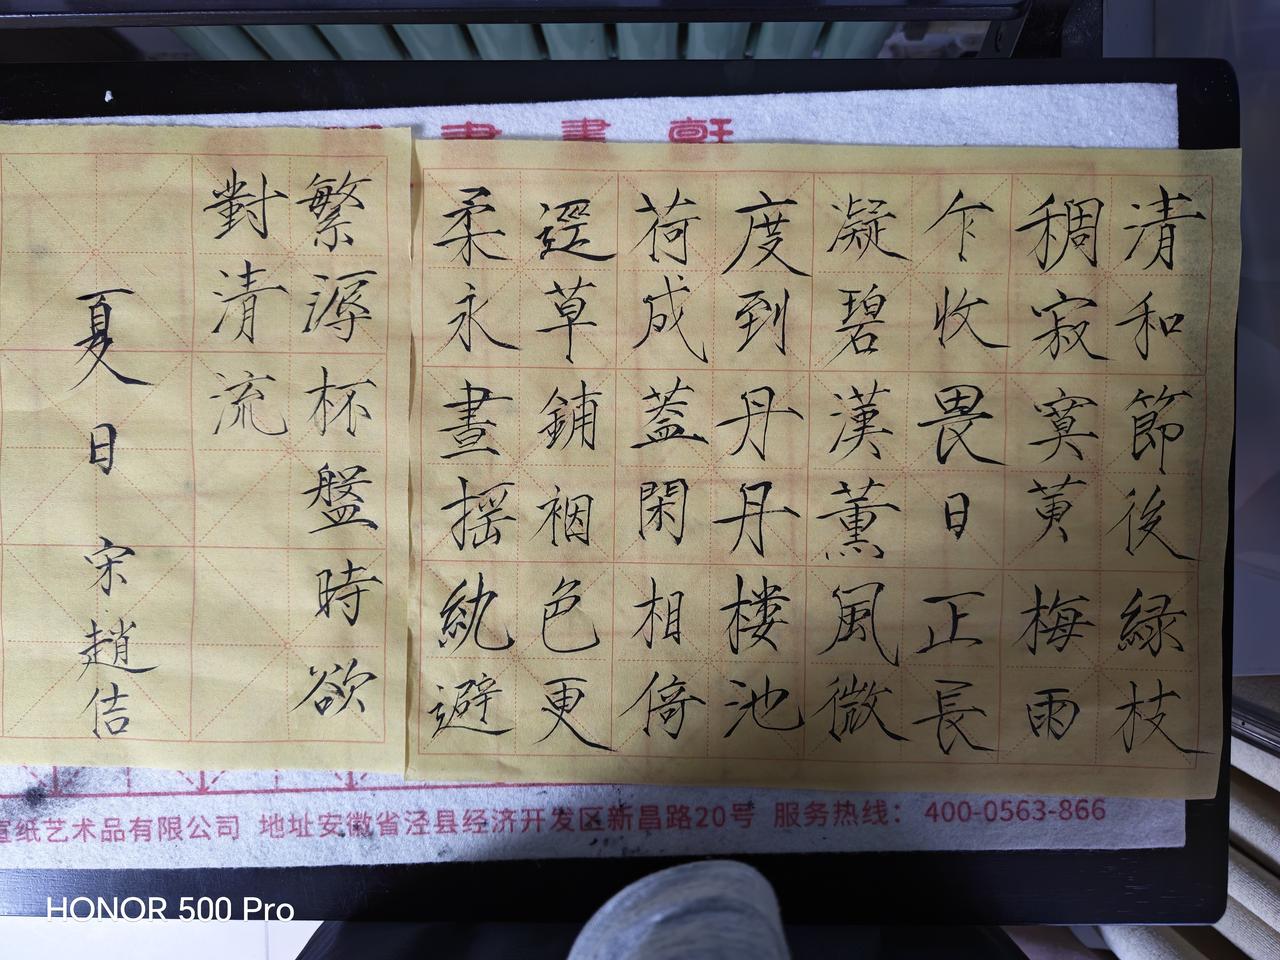 清和節後緑枝
稠寂寞黄梅雨
乍收畏日正長
凝碧漢薰風微
度到丹丹楼池
荷成蓋閑相倚
逕草鋪裀色更
柔永晝摇紈避
繁溽杯盤時欲
對清流
夏日 宋 趙佶
書畫軒
宣纸艺术品有限公司 地址安徽省泾县经济开发区新昌路20号 服务热线：400-0563-866
HONOR 500 Pro